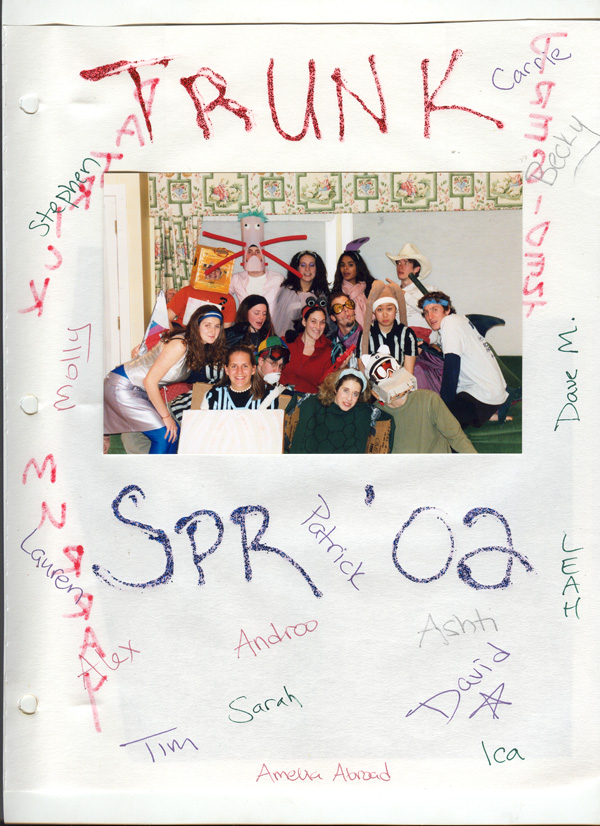 TRUNK
Carrie
Becky
Stephen
Molly
Dave M.
SPR '02
Patrick
Lauren
LEAH
Alex
Androo
Ashti
David
Sarah
Tim
Ica
Amelia Abroad